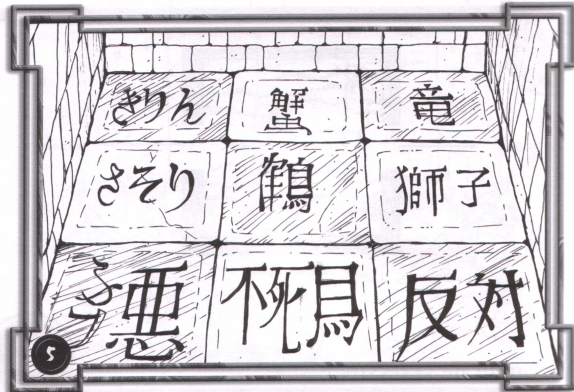 きりん 蟹 竜
さそり 鶴 獅子
悪 不死鳥 反対
5